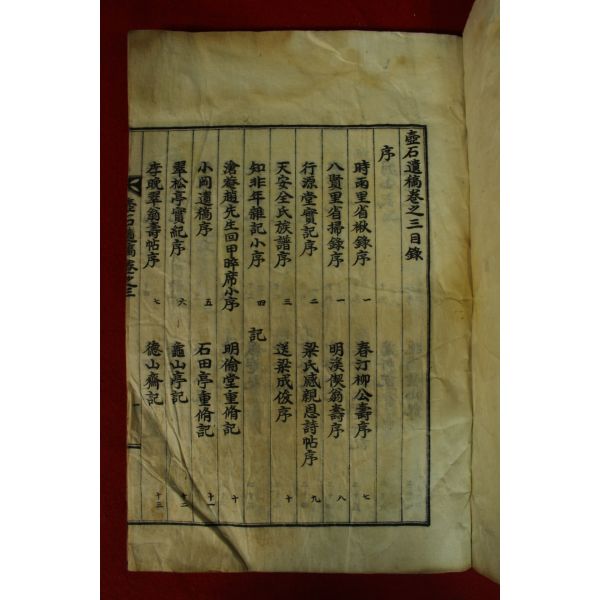 壺石遺稿卷之三目錄
序
時雨里省楸錄序 一
八賢里省掃錄序 一
行源堂實記序 二
天安全氏族譜序 三
知非年雜記小序 四
滄菴趙先生回甲晬席小序
小岡遺稿序 五
翠松亭實紀序 六
李晩翠翁壽帖序 七
春汀柳公壽序 七
明溪偰翁壽序 八
梁氏感親恩詩帖序 九
送梁成俊序 十
記
明倫堂重脩記 十
石田亭重脩記 十一
龜山亭記 十二
德山齋記 十三
壺石遺稿卷之三